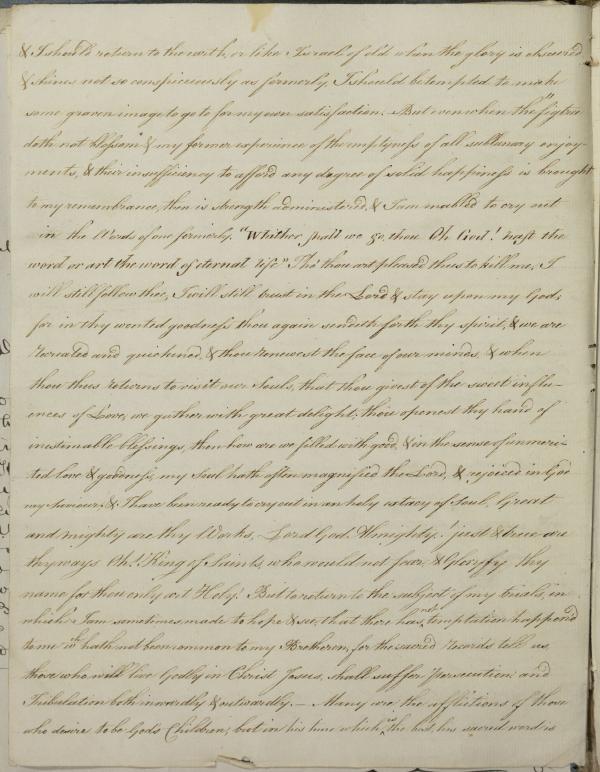 & I should return to the earth, or like Israel of old when the glory is obscured
& shines not so conspicuously as formerly, I should be tempted to make
some graven image to go to for my own satisfaction. But even when the "figtree
doth not blossom" & my former experience of the emptyness of all sublunary enjoy-
ments, & their insufficiency to afford any degree of solid happiness is brought
to my remembrance, then is strength administered, & I am enabled to cry out
in the Words of one formerly, "Whither shall we go, thou Oh God! hast the
word or art the word of eternal life" Tho' thou art pleased thus to kill me, I
will still follow thee, I will still trust in the Lord & stay upon my God;
for in thy wonted goodness thou again sendeth forth thy spirit, & we are
recreated and quickened, & thou renewest the face of our minds, & when
thou thus returns to visit our Souls, that thou givest of the sweet influ-
ences of Love, we gather with great delight; thou openest thy hand of
inestimable blessings, then how are we filled with good, & in the sense of unmeri-
ted love & goodness, my Soul hath often magnified the Lord, & rejoiced in God
my saviour; & I have been ready to cry out in an holy extacy of Soul, Great
and mighty are thy Works, Lord God Almighty! just & true are
thy ways Oh! King of Saints, who would not fear, & Glorify thy
name for thou only art Holy! But to return to the subject of my trials, in
which I am sometimes made to hope & see, that there has no temptation happend
to me wch hath not been common to my Brethren, for the sacred records tell us,
those who will live Godly in Christ Jesus, shall suffer Persecution; and
Tribulation both inwardly & outwardly. — Many are the afflictions of those
who desire to be Gods Children, but in his time which is the best, his sacred word is